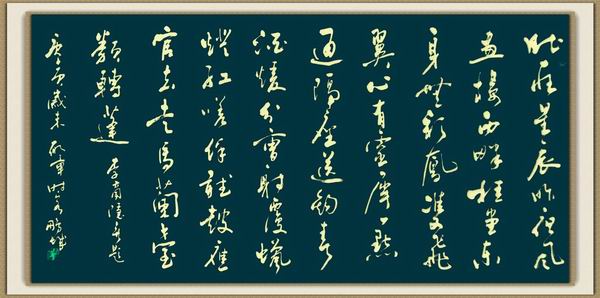 昨夜星辰昨夜風
畫樓西畔桂堂東
身無彩鳳雙飛
翼心有靈犀一點
通隔座送鉤春
酒暖分曹射覆蠟
燈紅嗟余聽鼓應
官去走馬蘭臺
類轉蓬 李商隱無題
歲末 時客鵬城